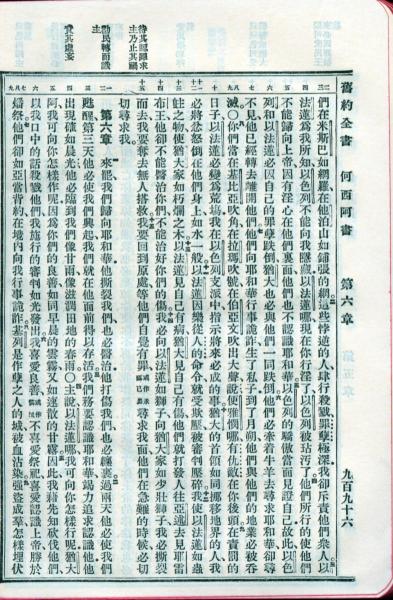 舊約全書 何西阿書 第六章 九百九十六
們在米斯巴如網羅在他泊山如鋪張的網這些悖逆的人肆行殺戮罪孽極深我卻斥責他們衆人以
法蓮爲我所知以色列不能向我隱藏以法蓮哪現在你行淫了以色列被玷污了他們所行的使他們
不能歸向上帝因有淫心在他們裏面他們也不認識耶和華以色列的驕傲當面見證自己故此以色
列和以法蓮必因自己的罪孽跌倒猶大也必與他們一同跌倒他們必牽着牛羊去尋求耶和華卻尋
不見他已經轉去離開他們他們向耶和華行事詭詐生了私子到了月朔他們與他們的地業必被吞
滅○你們當在基比亞吹角在拉瑪吹號在伯亞文吹出大聲說便雅憫哪有仇敵在你後頭在責罰的
日子以法蓮必變爲荒塲我在以色列支派中指示將來必成的事猶大的首領如同挪移地界的人我
必將忿怒倒在他們身上如水一般以法蓮因樂從人的命令就受欺壓被審判壓碎我使以法蓮如蟲
蛀之物使猶大家如朽爛之木以法蓮見自己有病猶大見自己有傷他們就打發人往亞述去見耶雷
布王他卻不能醫治你們不能治好你們的傷我必向以法蓮如獅子向猶大家如少壯獅子我必撕裂
而去我要奪去無人搭救我要回到原處等他們自覺有罪尋求我面他們在急難的時候必切
待其認罪求主乃止其禍
切尋求我
勸民轉而識主
第六章 來罷我們歸向耶和華他撕裂我們也必醫治他打傷我們也必纏裹過兩天他必使我們
甦醒第三天他必使我們興起我們就在他面前得以存活我們務要認識耶和華竭力追求認識他他
出現確如晨光他必臨到我們像甘雨像滋潤田地的春雨○主說以法蓮哪我可向你怎樣行呢猶大
責其虛妄
阿我可向你怎樣作呢因爲你們的良善如同早晨的雲霧又如速散的甘露因此我藉先知砍伐他們
以我口中的話殺戮他們我施行的審判如光發出我喜愛良善不喜愛祭祀喜愛認識上帝勝於
燔祭他們卻如亞當背約在境內向我行事詭詐基列是作孽之人的城被血沾染強盜成羣怎樣埋伏